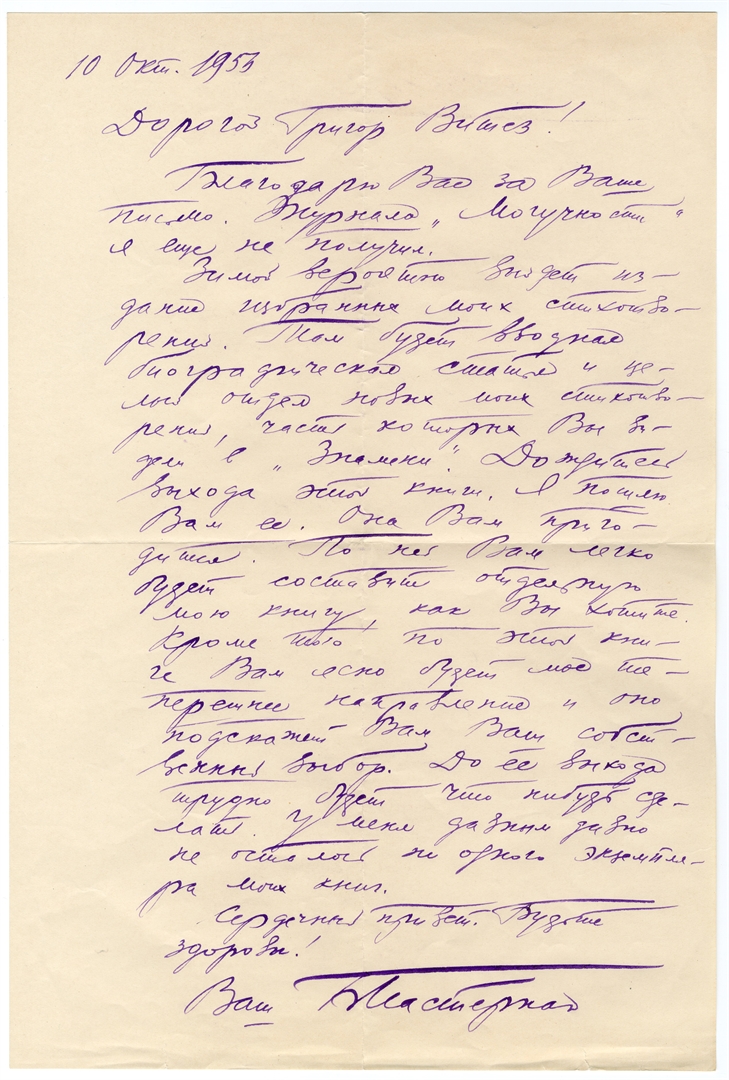 10 Окт. 1955
Дорогой Григор Витез!
Благодарю Вас за Ваше
письмо. Журнала „Могучности"
я еще не получил.
Зимой вероятно выйдет из-
дание избранных моих стихотво-
рений. Там будет вводная
биографическая статья и це-
лый отдел новых моих стихотво-
рений, часть которых Вы ви-
дели в „Знамени". Дождитесь
выхода этой книги. Я пошлю
Вам ее. Она Вам приго-
дится. По ней Вам легко
будет составить отдельную
мою книгу, как Вы хотите.
Кроме того по этой кни-
ге Вам ясно будет мое те-
перешнее направление и оно
подскажет Вам Ваш собст-
венный выбор. До ее выхода
трудно будет что нибудь сде-
лать. У меня давным давно
не осталось ни одного экземпля-
ра моих книг.
Сердечный привет. Будьте
здоровы!
Ваш Б Пастернак